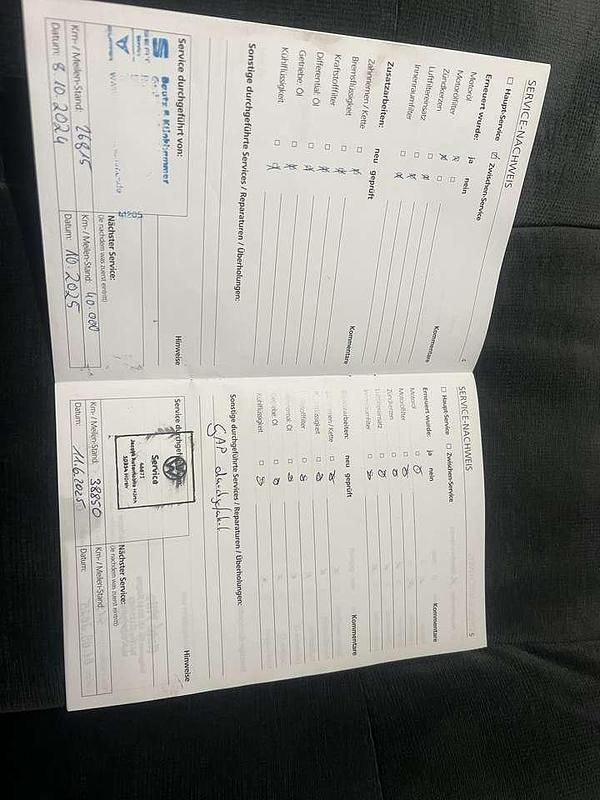 SERVICE-NACHWEIS
☐ Haupt-Service ☑ Zwischen-Service
Erneuert wurde: ja nein Kommentare
Motoröl
Motorölfilter
Zündkerzen
Luftfiltereinsatz
Innenraumfilter
Zusatzarbeiten: neu geprüft Kommentare
Zahnriemen / Kette
Bremsflüssigkeit
Kraftstofffilter
Differential: Öl
Getriebe: Öl
Kühlflüssigkeit
Sonstige durchgeführte Services / Reparaturen / Überholungen:
Service durchgeführt von:
SEAT
Beutz & Klinkhammer
Nächster Service:
(je nachdem was zuerst eintritt)
Hinweise
Km- / Meilen-Stand: 26815
Km- / Meilen-Stand: 40.000
Datum: 8.10.2024
Datum: 10.2025
4
SERVICE-NACHWEIS
☐ Haupt-Service ☐ Zwischen-Service
Erneuert wurde: ja nein Kommentare
Motoröl
Motorölfilter
Zündkerzen
neu geprüft Kommentare
Kühlflüssigkeit
Sonstige durchgeführte Services / Reparaturen / Überholungen:
GAP
Service durchgeführt
Service
Nächster Service:
(je nachdem was zuerst eintritt)
Hinweise
Km- / Meilen-Stand: 38850
Km- / Meilen-Stand:
Datum: 11.6.2025
Datum:
5